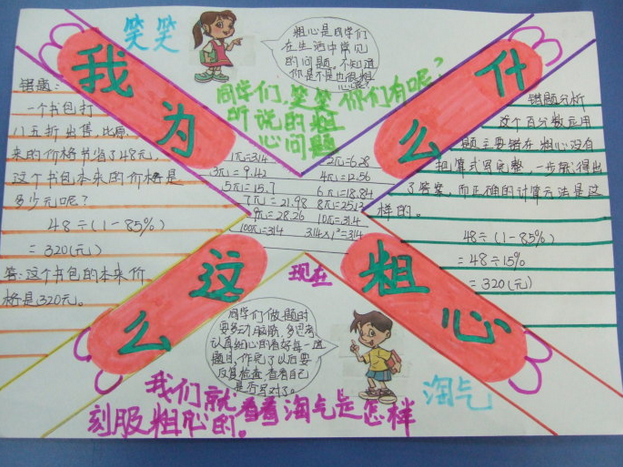 我为什么
这么粗心
笑笑
粗心是同学们
在生活中常见
的问题,不知道
你是不是也很粗
心呢?
同学们,笑笑 你们有呢?
所说的粗
心问题
错题:
一个书包打
八五折出售,比原
来的价格节省了48元,
这个书包本来的价格是
多少元呢?
48÷(1-85%)
=320(元)
答:这个书包的本来价
格是320元。
1π=3.14
2π=6.28
3π=9.42
4π=12.56
5π=15.7
6π=18.84
7π=21.98
8π=25.12
9π=28.26
10π=31.4
错题分析
这个百分数应用
题主要错在粗心没有
把算式写完整,一步就得出
了答案,而正确的计算方法是这
样的。
48÷(1-85%)
=48÷15%
=320(元)
现在
同学们做题时
要多动脑筋,多思考,
认真细心的看好每一道
题目,作完了以后要
反复检查看看自己
是否写对了。
淘气
我们就看看淘气是怎样
刻服粗心的。